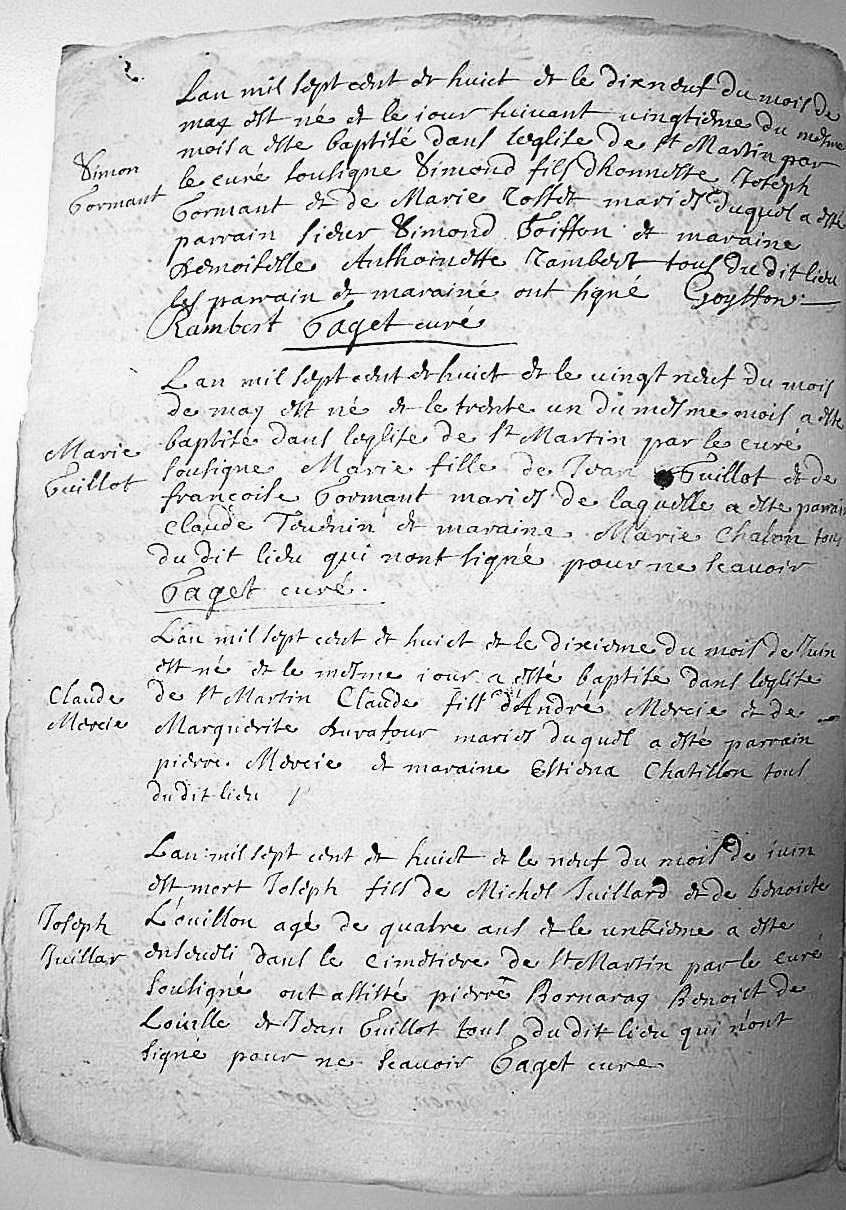 Lan mil sept cent et huict et le dixneuf du mois de
may est né et le iour suivant vingtieme du mesme
mois a este baptisé dans leglise de St Martin par
Simon
Formant
le curé sousigne Simond fils dhonneste Joseph
Formant et de Marie mariés duquel a esté
parrain sieur Simond et maraine
Demoiselle Anthoinette Rambert tous du dit lieu
les parrain et maraine ont signé Goyffon
Rambert Faget curé
Lan mil sept cent et huict et le vingt neuf du mois
de may est né et le trente un du mesme mois a este
Marie
Guillot
baptisé dans leglise de St Martin par le curé
sousigne Marie fille de Jean Guillot et de
francoise Formant mariés de laquelle a este parrain
Claude et maraine Marie tous
du dit lieu qui nont signé pour ne scavoir
Faget curé.
Lan mil sept cent et huict et le dixieme du mois de Juin
est né et le mesme iour a esté baptisé dans leglise
Claude
Mercie
de St Martin Claude fils d'André Mercie et de
Marguerite Durafour mariés duquel a esté parrain
pierre Mercie et maraine Estiena Chatillon tous
du dit lieu
Lan mil sept cent et huict et le neuf du mois de iuin
est mort Joseph fils de Michel Juillard et de benoicte
Joseph
Juillar
Louillon agé de quatre ans et le unzieme a este
enseveli dans le cimetiere de St Martin par le curé
sousigné ont assisté pierre Bornarag Benoict de
et Jean Guillot tous du dit lieu qui n'ont
signé pour ne scavoir Faget cure